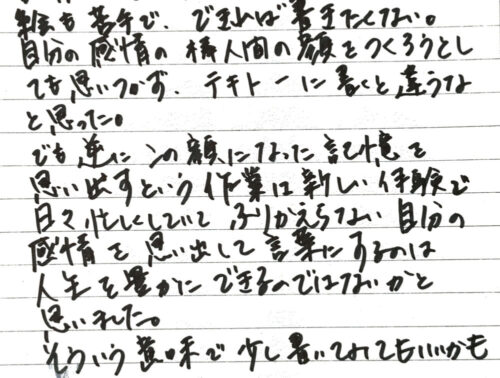 絵も苦手で、できれば書きたくない。
自分の感情の棒人間の顔をつくろうとし
ても思いつかず、テキトーに書くと違うな
と思った。
でも逆にこの顔になった記憶を
思い出すという作業は新しい体験で
日々忙しくしていて ふりかえらない自分の
感情を思い出して言葉にするのは
人生を豊かにできるのではないかと
思いました。
そういう意味で少し書いてみてもいいかも